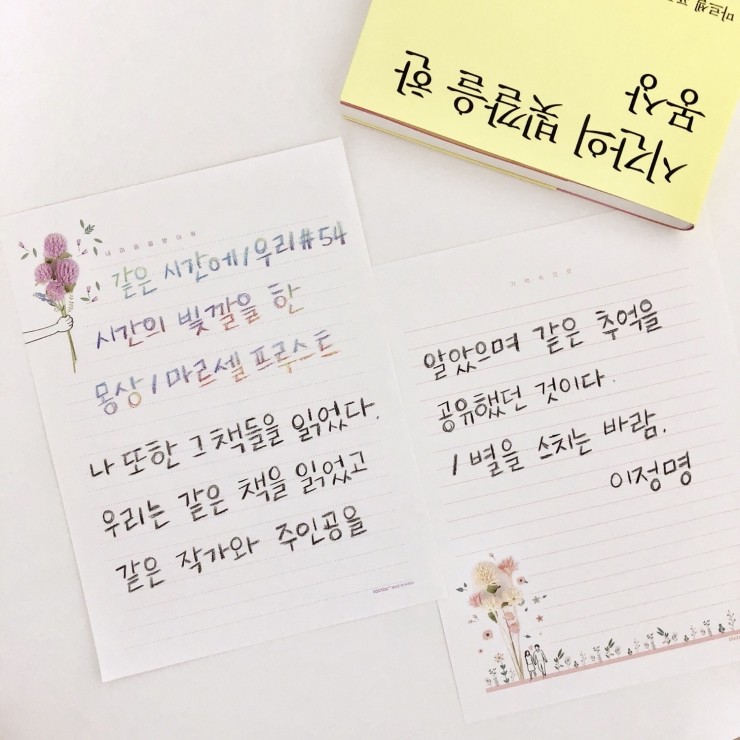 시간의 빛깔을 한
몽상
마르셀 프
같은 시간에/우리#54
시간의 빛깔을 한
몽상/마르셀 프루스트
나 또한 그 책들을 읽었다.
우리는 같은 책을 읽었고
같은 작가와 주인공을
알았으며 같은 추억을
공유했던 것이다.
/별을 스치는 바람.
이정명